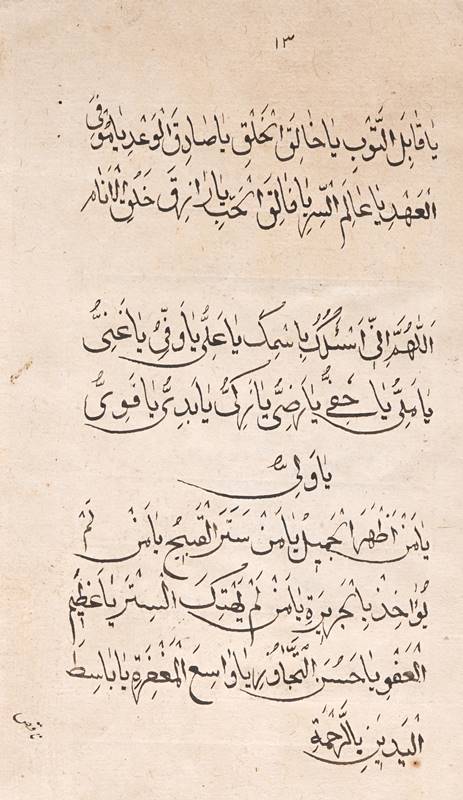 ١٣
يَا قَابِلَ التَّوْبِ يَا خَالِقَ الْخَلْقِ يَا صَادِقَ الْوَعْدِ يَا مُوفِىَ
الْعَهْدِ يَا عَالِمَ السِّرِّ يَا فَالِقَ الْحَبِّ يَا رَازِقَ خَلْقِ الْاَنَامِ
اَللّٰهُمَّ اِنِّى اَسْئَلُكَ بِاسْمِكَ يَا عَلِىُّ يَا وَفِىُّ يَا غَنِىُّ
يَا مَلِىُّ يَا حَفِىُّ يَا رَضِىُّ يَا زَكِىُّ يَا بَدِىُّ يَا قَوِىُّ
يَا وَلِىُّ
يَا مَنْ اَظْهَرَ الْجَمِيْلَ يَا مَنْ سَتَرَ الْقَبِيْحَ يَا مَنْ لَمْ
يُؤَاخِذْ بِالْجَرِيْرَةِ يَا مَنْ لَمْ يَهْتِكَ السِّتْرَ يَا عَظِيْمَ
الْعَفْوِ يَا حَسَنَ التَّجَاوُزِ يَا وَاسِعَ الْمَغْفِرَةِ يَا بَاسِطَ
الْيَدَيْنِ بِالرَّحْمَةِ